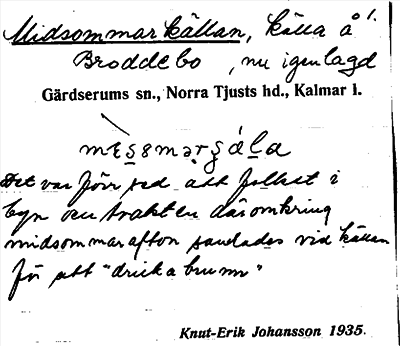 Midsommarkällan, källa å 1.
Broddebo, nu igenlagd
Gärdserums sn., Norra Tjusts hd., Kalmar l.
Det var förr sed att folket i
byn och trakten däromkring
midsommarafton samlades vid källan
för att "dricka brunn"
Knut-Erik Johansson 1935.